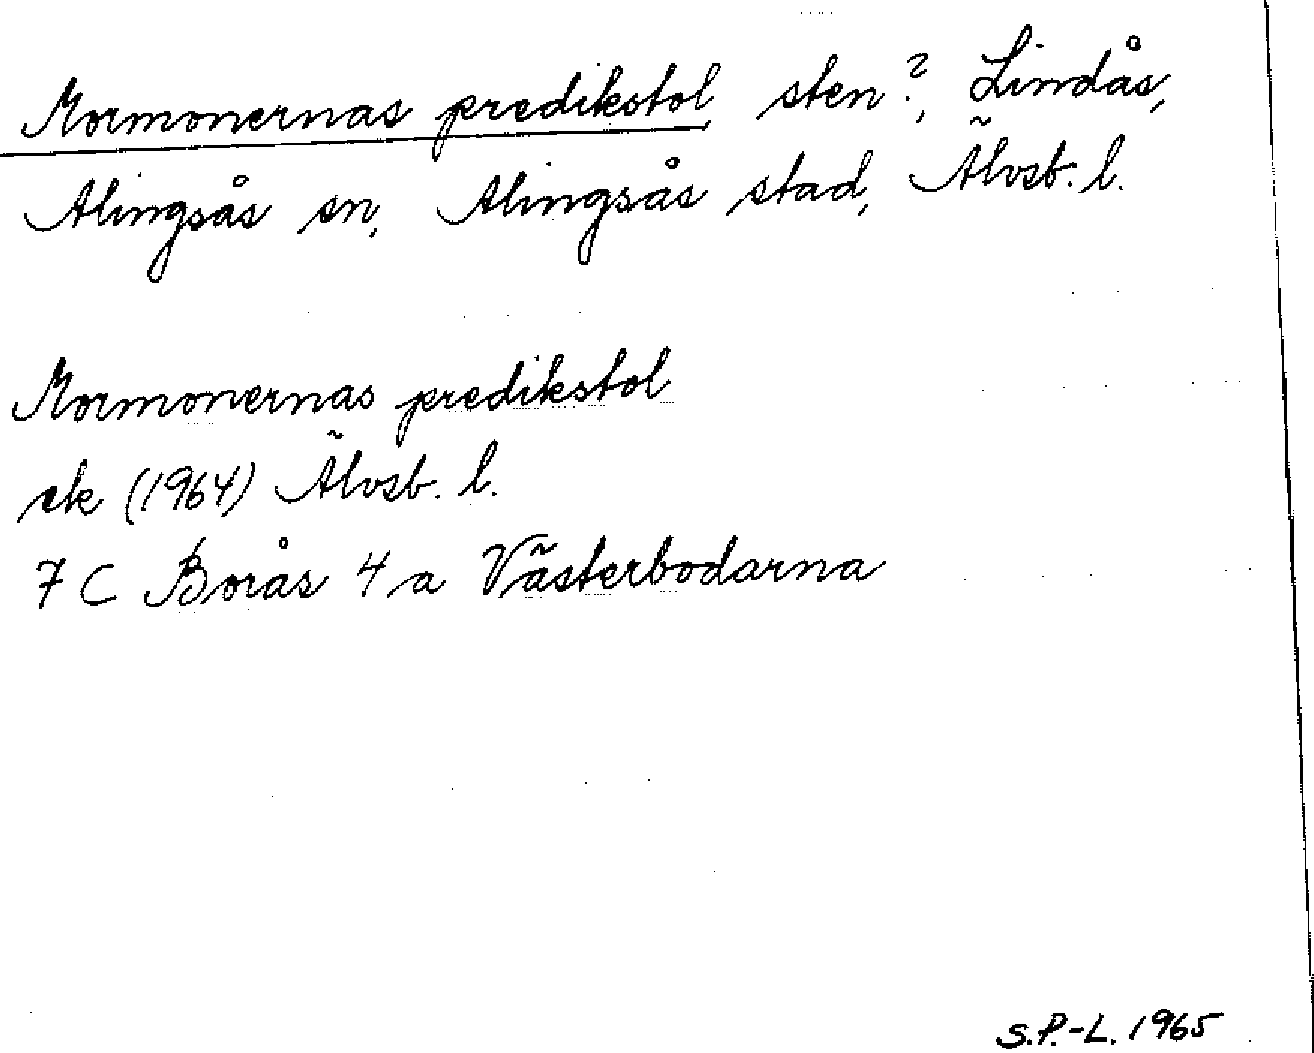 Mormonernas predikstol, sten?, Lindås,
Alingsås sn, Alingsås stad, Älvsb. l.
Mormonernas predikstol
ek (1964) Älvsb. l.
7 C Borås 4 a Västerbodarna
S.P.-L. 1965